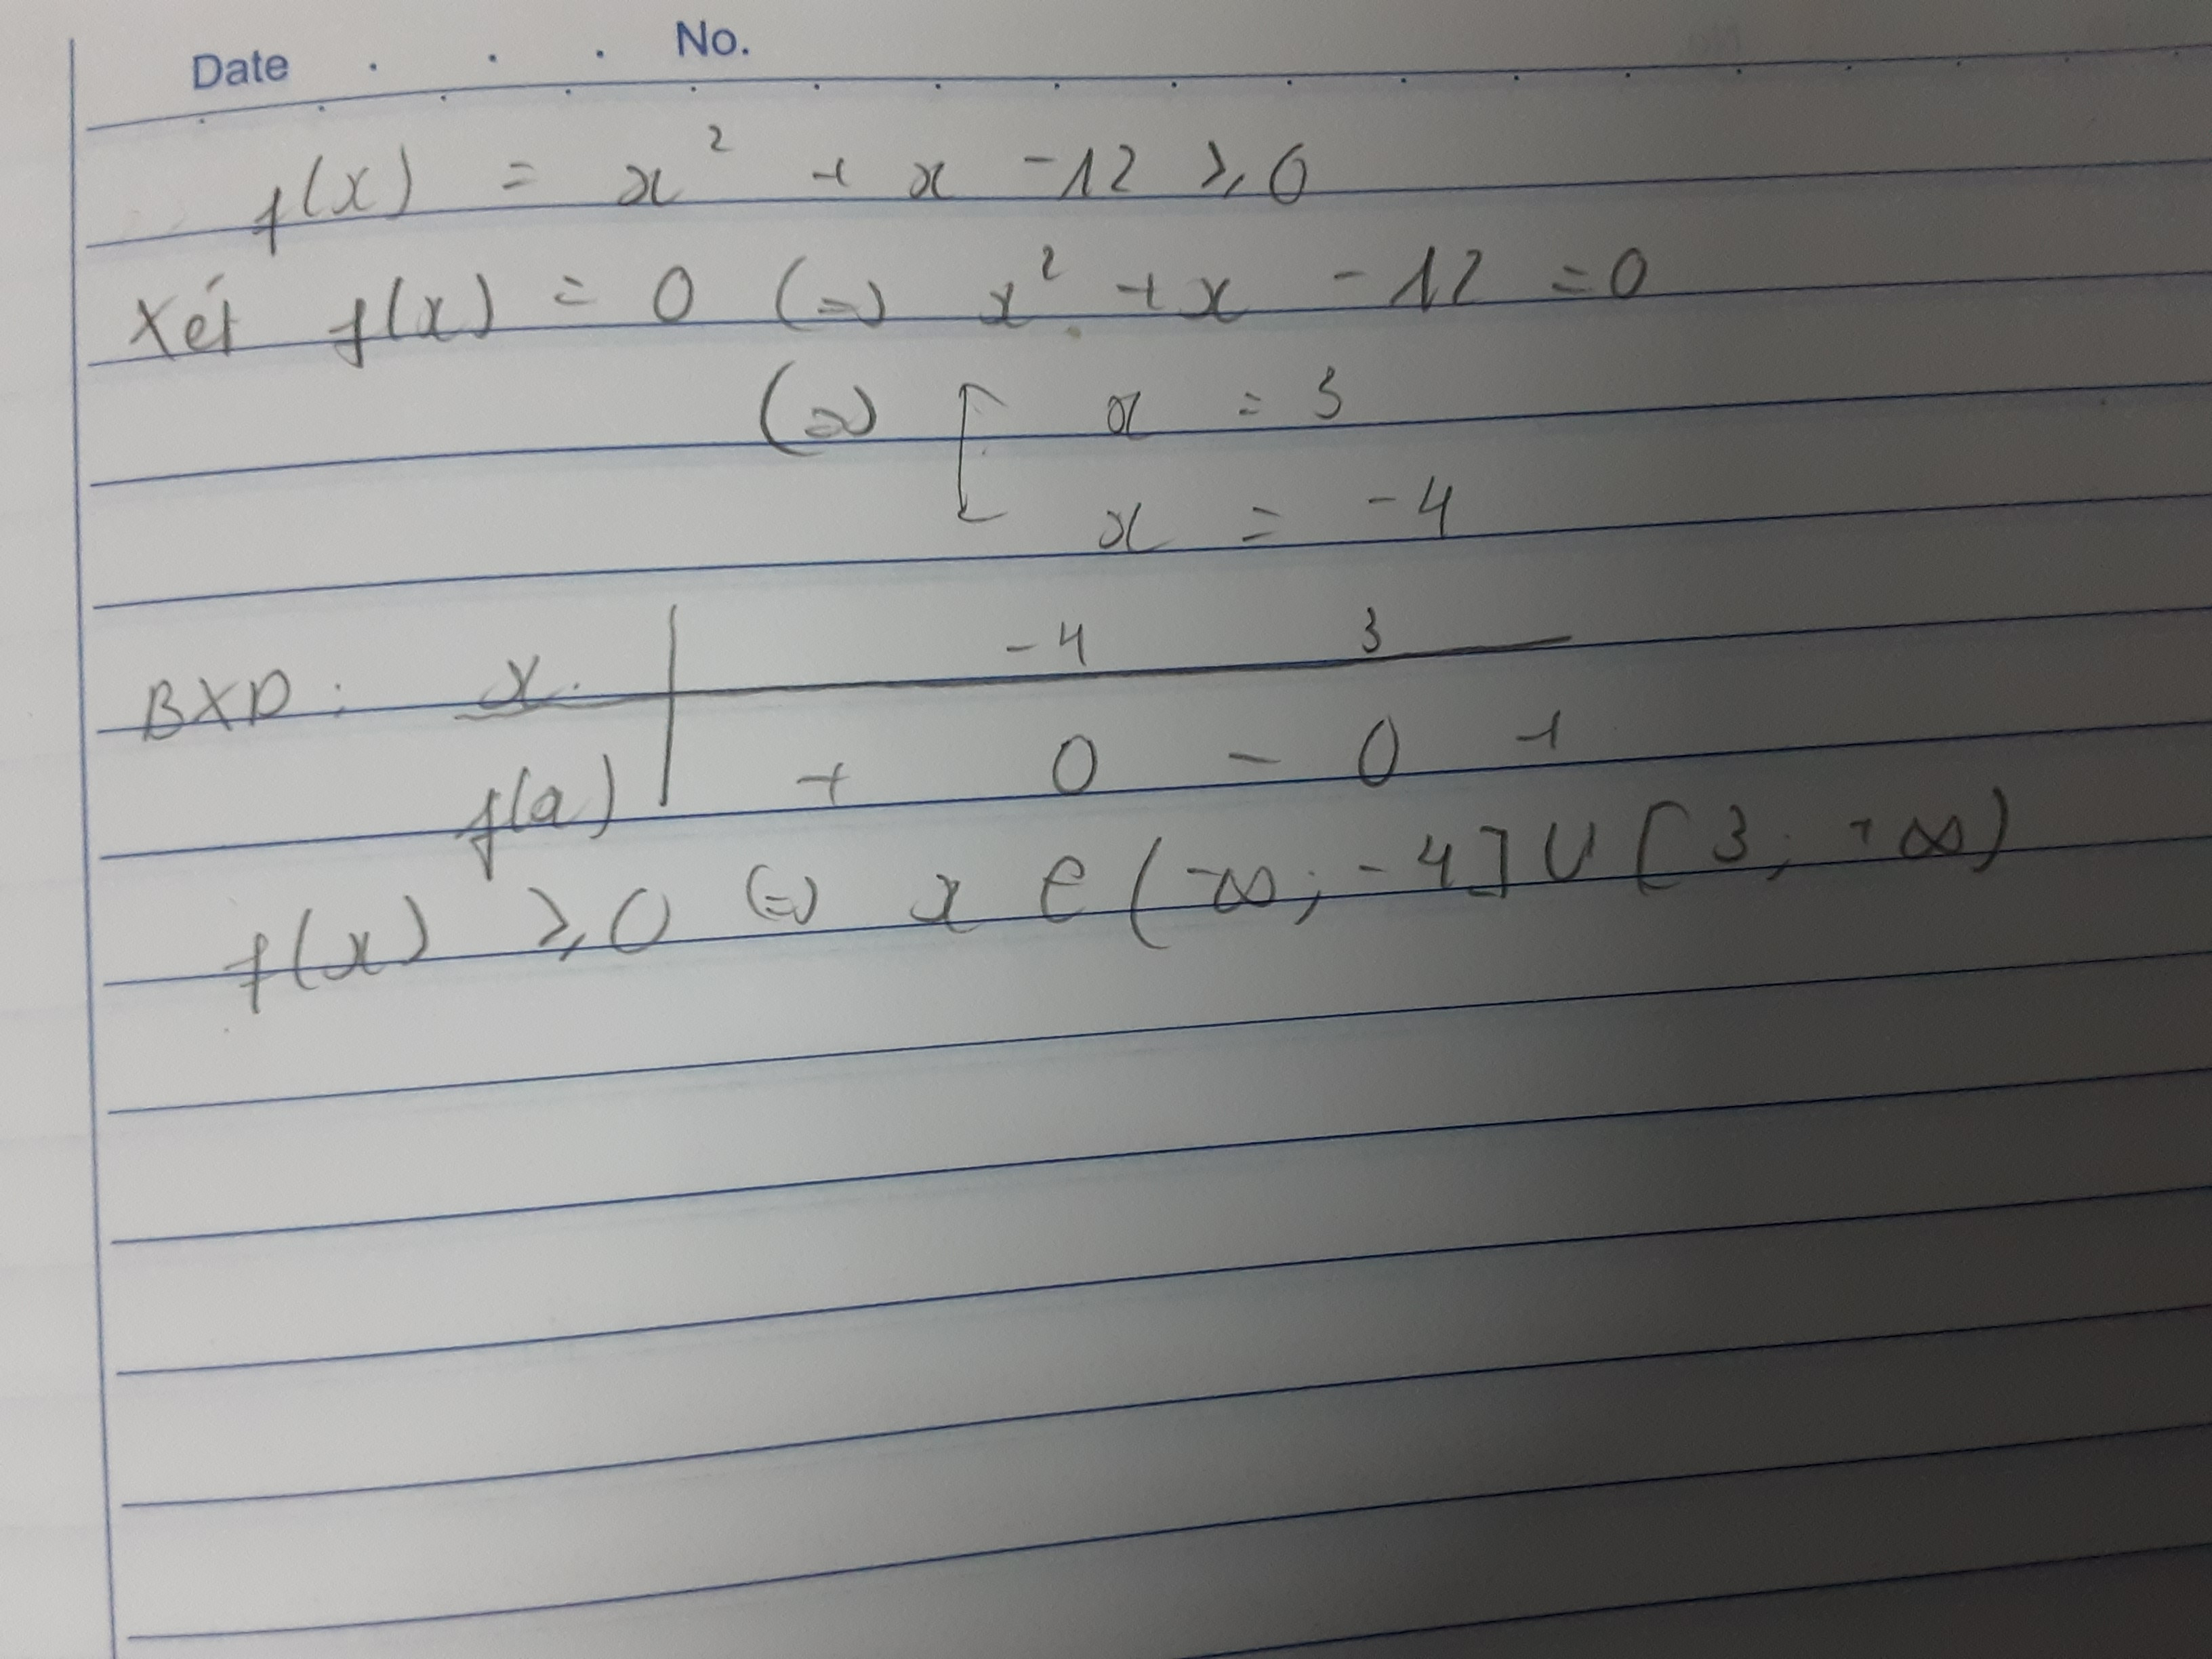 Date . . . No.
f(x) = x² + x - 12 ⩾ 0
Xét f(x) = 0 (=) x² + x - 12 = 0
(=) [ x = 3
x = -4
-4 3
BXD : x
f(a) + 0 - 0 +
f(x) ⩾ 0 (=) x ∈ (-∞; -4] ∪ [3; +∞)